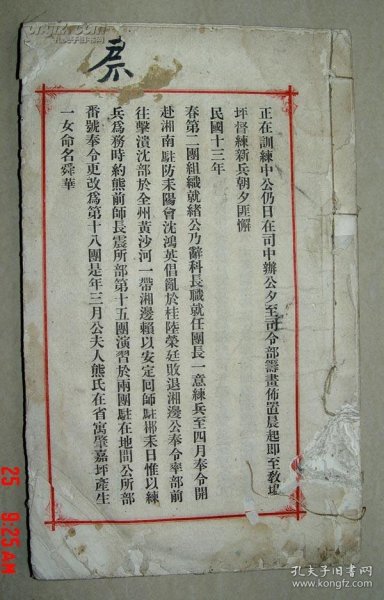 正在訓練中公仍日在司中辦公夕至司令部籌畫佈置晨起即至教塲
坪督練新兵朝夕匪懈
民國十三年
春第二團組織就緒公乃辭科長職就任團長一意練兵至四月奉令開
赴湘南駐防耒陽會沈鴻英倡亂於桂陸榮廷敗退湘邊公奉令率部前
往擊潰沈部於全州黃沙河一帶湘邊賴以安定回師駐郴耒日惟以練
兵爲務時約熊前師長震所部第十五團演習於兩團駐在地間公所部
番號奉令更改爲第十八團是年三月公夫人熊氏在省寓肇嘉坪產生
一女命名舜華
25 9:25AM
孔夫子旧书网
www.kongfz.com